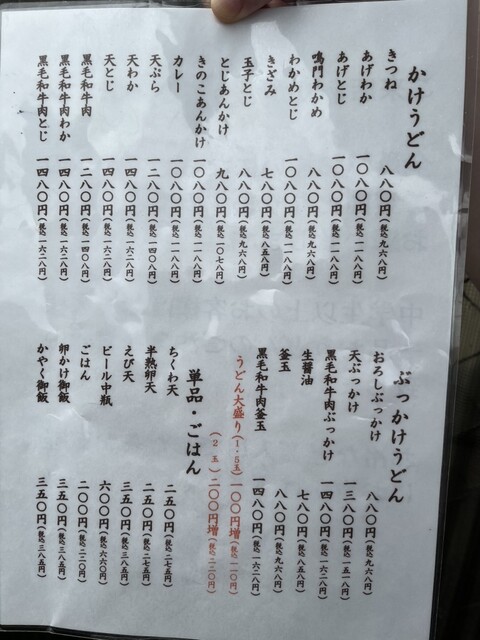 かけうどん
きつね 八八〇円(税込九六八円)
あげわか 一〇八〇円(税込一一八八円)
あげとじ 一〇八〇円(税込一一八八円)
鳴門わかめ 八八〇円(税込九六八円)
わかめとじ 一〇八〇円(税込一一八八円)
きざみ 七八〇円(税込八五八円)
玉子とじ 八八〇円(税込九六八円)
とじあんかけ 九八〇円(税込一〇七八円)
きのこあんかけ 一〇八〇円(税込一一八八円)
カレー 一〇八〇円(税込一一八八円)
天ぷら 一二八〇円(税込一四〇八円)
天わか 一四八〇円(税込一六二八円)
天とじ 一四八〇円(税込一六二八円)
黒毛和牛肉 一二八〇円(税込一四〇八円)
黒毛和牛肉わか 一四八〇円(税込一六二八円)
黒毛和牛肉とじ 一四八〇円(税込一六二八円)
ぶっかけうどん
おろしぶっかけ 八八〇円(税込九六八円)
天ぶっかけ 一三八〇円(税込一五一八円)
黒毛和牛肉ぶっかけ 一四八〇円(税込一六二八円)
生醤油 七八〇円(税込八五八円)
釜玉 八八〇円(税込九六八円)
黒毛和牛肉釜玉 一四八〇円(税込一六二八円)
うどん大盛り(1.5玉) 一〇〇円増(税込一一〇円)
(2玉) 二〇〇円増(税込二二〇円)
単品・ごはん
ちくわ天 二五〇円(税込二七五円)
半熟卵天 二五〇円(税込二七五円)
えび天 三五〇円(税込三八五円)
ビール中瓶 六〇〇円(税込六六〇円)
ごはん 二〇〇円(税込二二〇円)
卵かけ御飯 三五〇円(税込三八五円)
かやく御飯 三五〇円(税込三八五円)